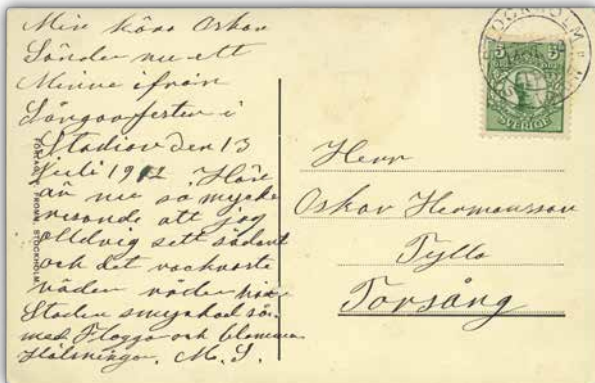 Min kära Oskar
Sänder nu ett
Minne ifrån
Sångarfesten i
Stadion den 13
Juli 1912. Här
är nu så mycke
resande att jag
alldrig sett sådant
och det vackraste
väder råder här
Staden smyckad så
med Flaggor och blommor
Hälsningar. M. S.
STOCKHOLM
5
SVERIGE
Herr
Oskar Hermansson
Tylla
Torsång
STOCKHOLM